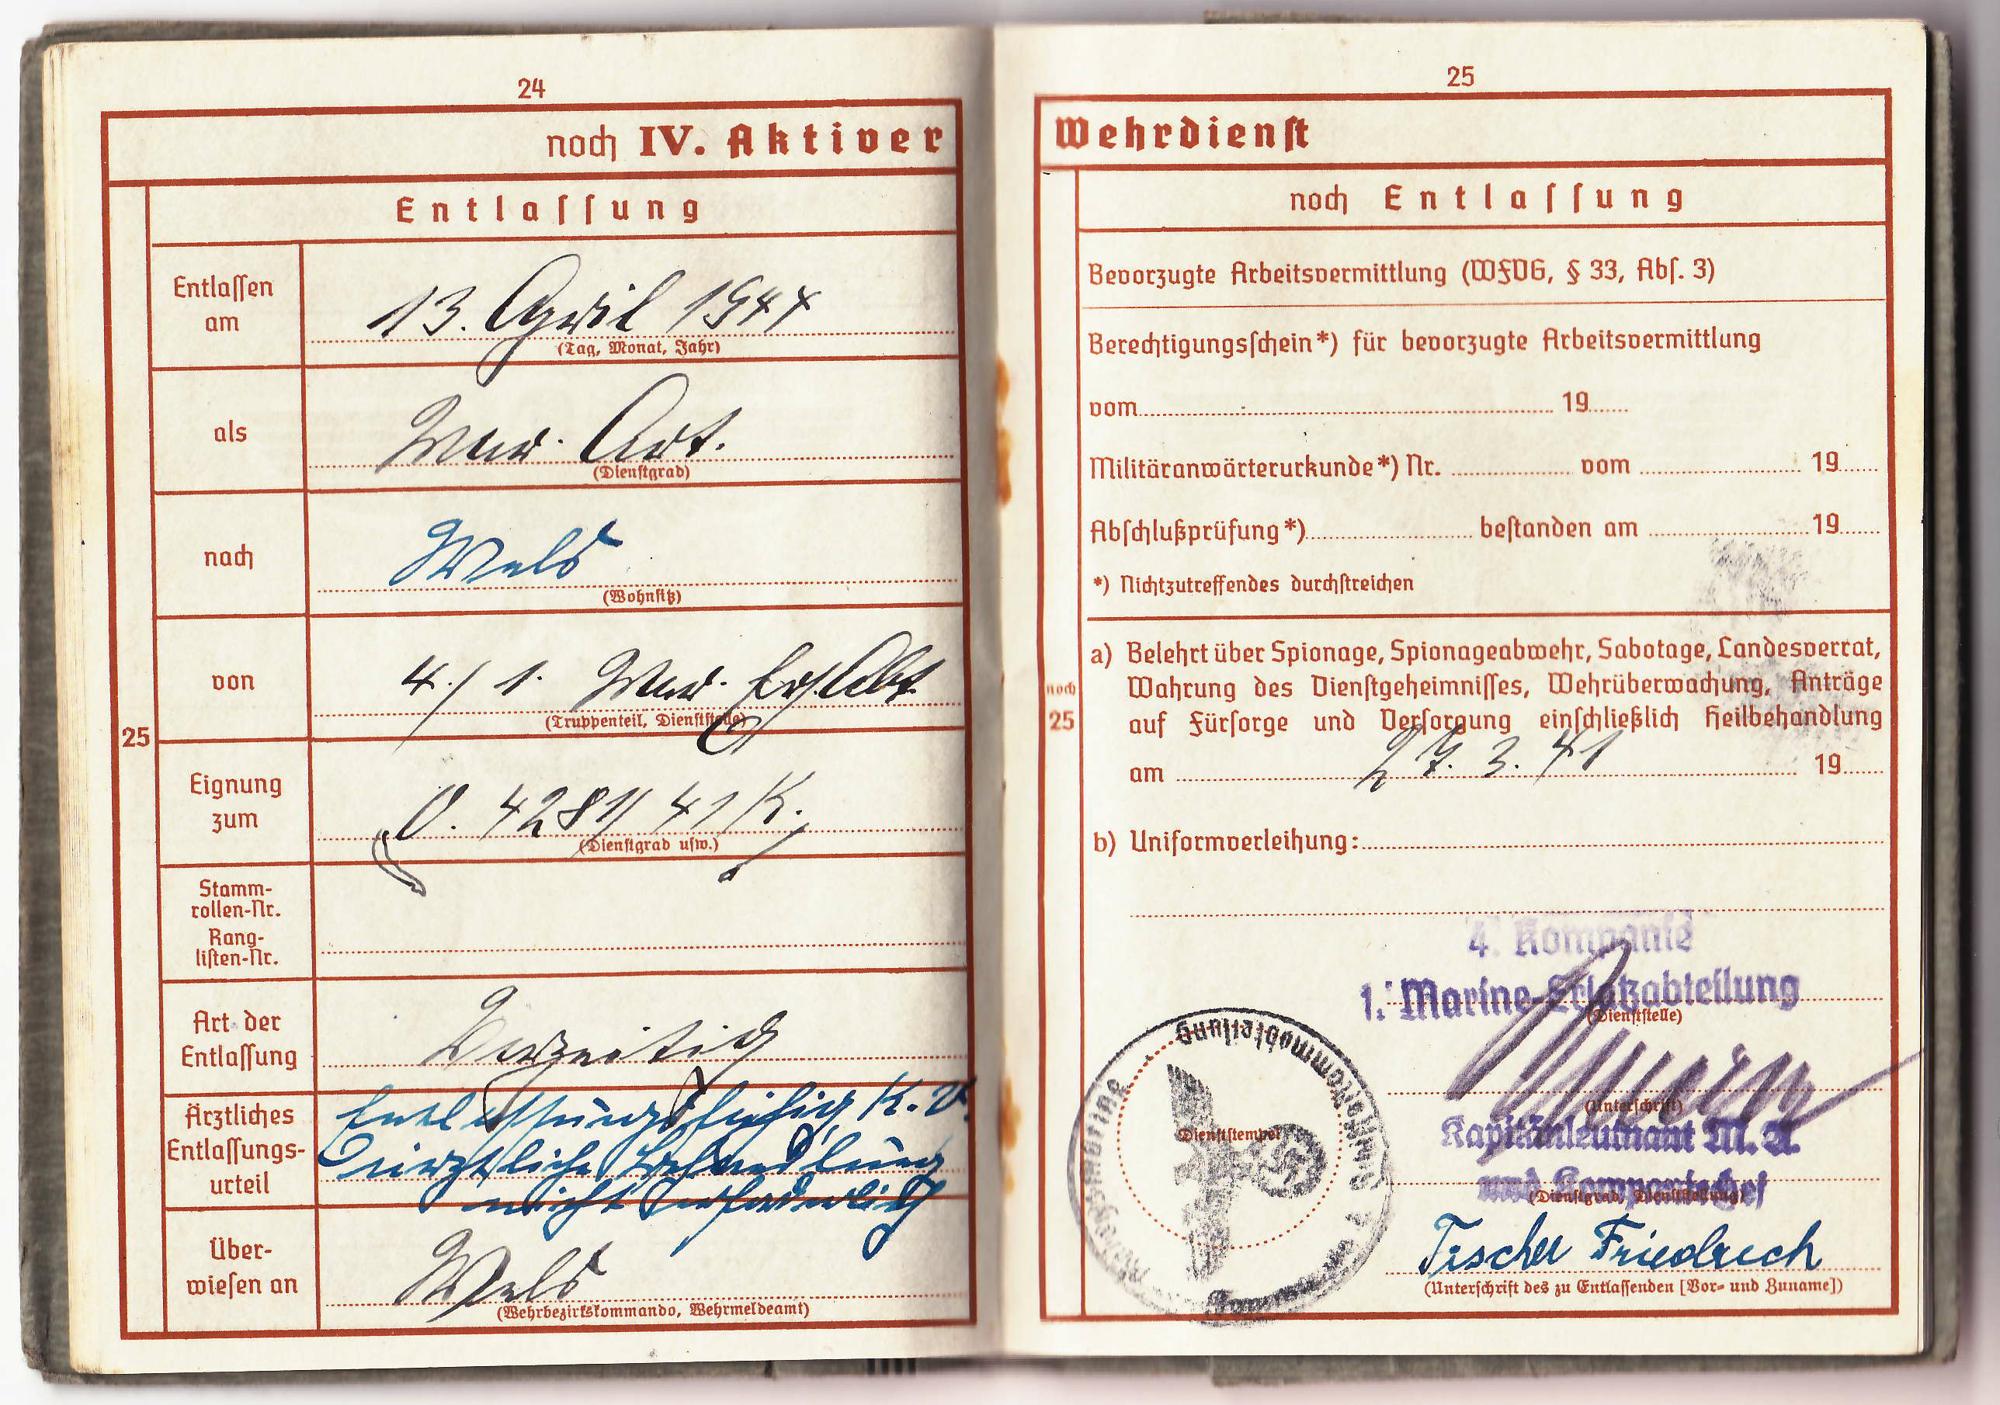 24
noch IV. Aktiver
Entlassung
Entlassen am
13. April 1944
(Tag, Monat, Jahr)
als
Mar. Art.
(Dienstgrad)
nach
Wels
(Wohnsitz)
von
4./ 1. Mar. Ers. Abt.
(Truppenteil, Dienststelle)
25
Eignung zum
4281/41 K.
(Dienstgrad usw.)
Stamm-
rollen-Nr.
Rang-
listen-Nr.
Art der
Entlassung
Vorzeitig
Ärztliches
Entlassungs-
urteil
Entlassungsfähig, K.V.
ärztliche Behandlung
nicht erforderlich
Über-
wiesen an
Wels
(Wehrbezirkskommando, Wehrmeldeamt)
25
Wehrdienst
noch Entlassung
Bevorzugte Arbeitsvermittlung (WFVG, § 33, Abs. 3)
Berechtigungsschein*) für bevorzugte Arbeitsvermittlung
vom 19
Militäranwärterurkunde*) Nr. vom 19
Abschlußprüfung*) bestanden am 19
*) Nichtzutreffendes durchstreichen
noch
25
a) Belehrt über Spionage, Spionageabwehr, Sabotage, Landesverrat,
Wahrung des Dienstgeheimnisses, Wehrüberwachung, Anträge
auf Fürsorge und Versorgung einschließlich Heilbehandlung
am 27. 3. 41 19
b) Uniformverleihung:
4. Kompanie
1. Marine-Ersatzabteilung
(Dienststelle)
(Unterschrift)
Kapitänleutnant M. A.
und Kompaniechef
(Dienstgrad, Dienststellung)
Dienststempel
Tischer Friedrich
(Unterschrift des zu Entlassenden [Vor- und Zuname])